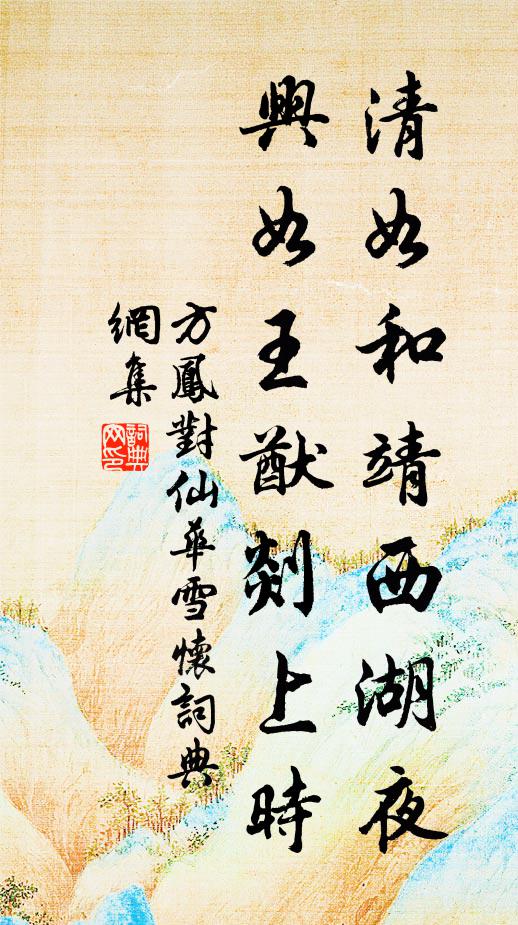 清如和靖西湖夜
興如王猷剡上時
方鳳對仙華雪懷詞典
網集
詞典網印